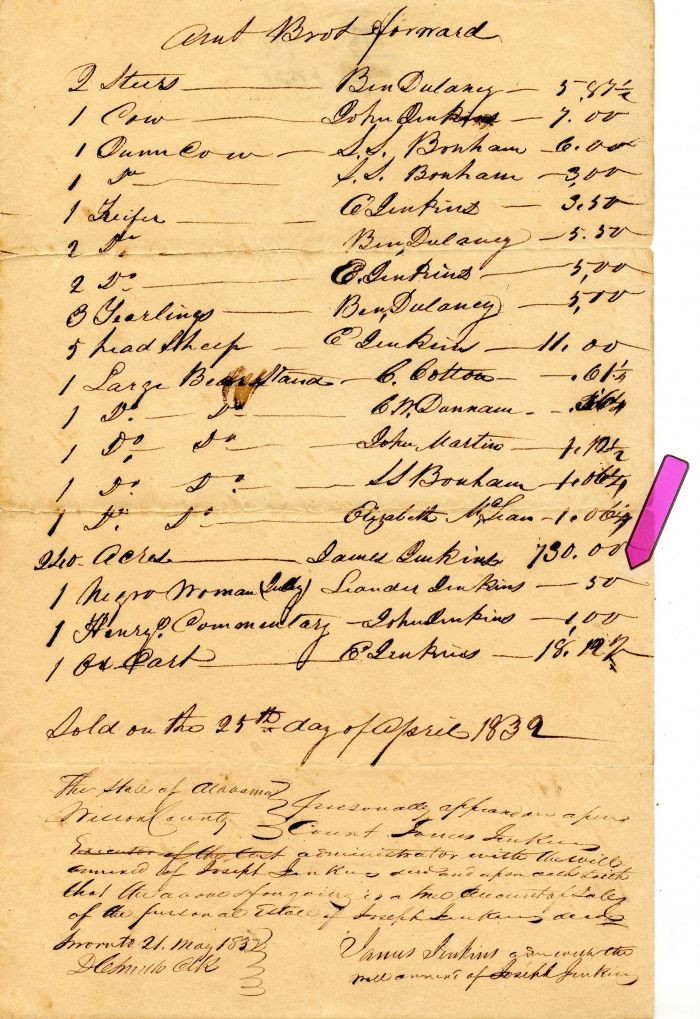 Amt Brot forward
2 Steers — Ben Dulaney — 5.87½
1 Cow — John Jenkins — 7.00
1 Dunn Cow — S.S. Bonham — 6.00
1 Do — S.S. Bonham — 3,00
1 Heifer — E Jenkins — 3.50
2 Do — Ben, Dulaney — 5.50
2 Do — E. Jenkins — 5,00
3 Yearlings — Ben, Dulaney — 5,00
5 head Sheep — E Jenkins — 11.00
1 Large Stand — C. Cotton — .61¼
1 Do Do C W. Dunnam
1 Do Do John Martin — 1.12½
1 Do Do SS Bonham — 1.06¼
1 Do Do Elizabeth McLean — 1.06¼
240 Acres — James Jenkins 730.00
1 Negro Woman Leander Jenkins — 50
1 Henrys. Commentary — John Jenkins — 1,00
1 Ox Cart — E Jenkins — 18.12½
Sold on the 25th day of April 1832
The State of Alabama } Personally appeared in open
County } Court James Jenkins
Executor of the last administrator with the will
annexed of Joseph Jenkins decd and upon oath saith
that the above & foregoing is a true account of Sales
of the personal Estate of Joseph Jenkins decd
Sworn to 21. May 1832
Clk
James Jenkins adm with the
will annexed of Joseph Jenkins